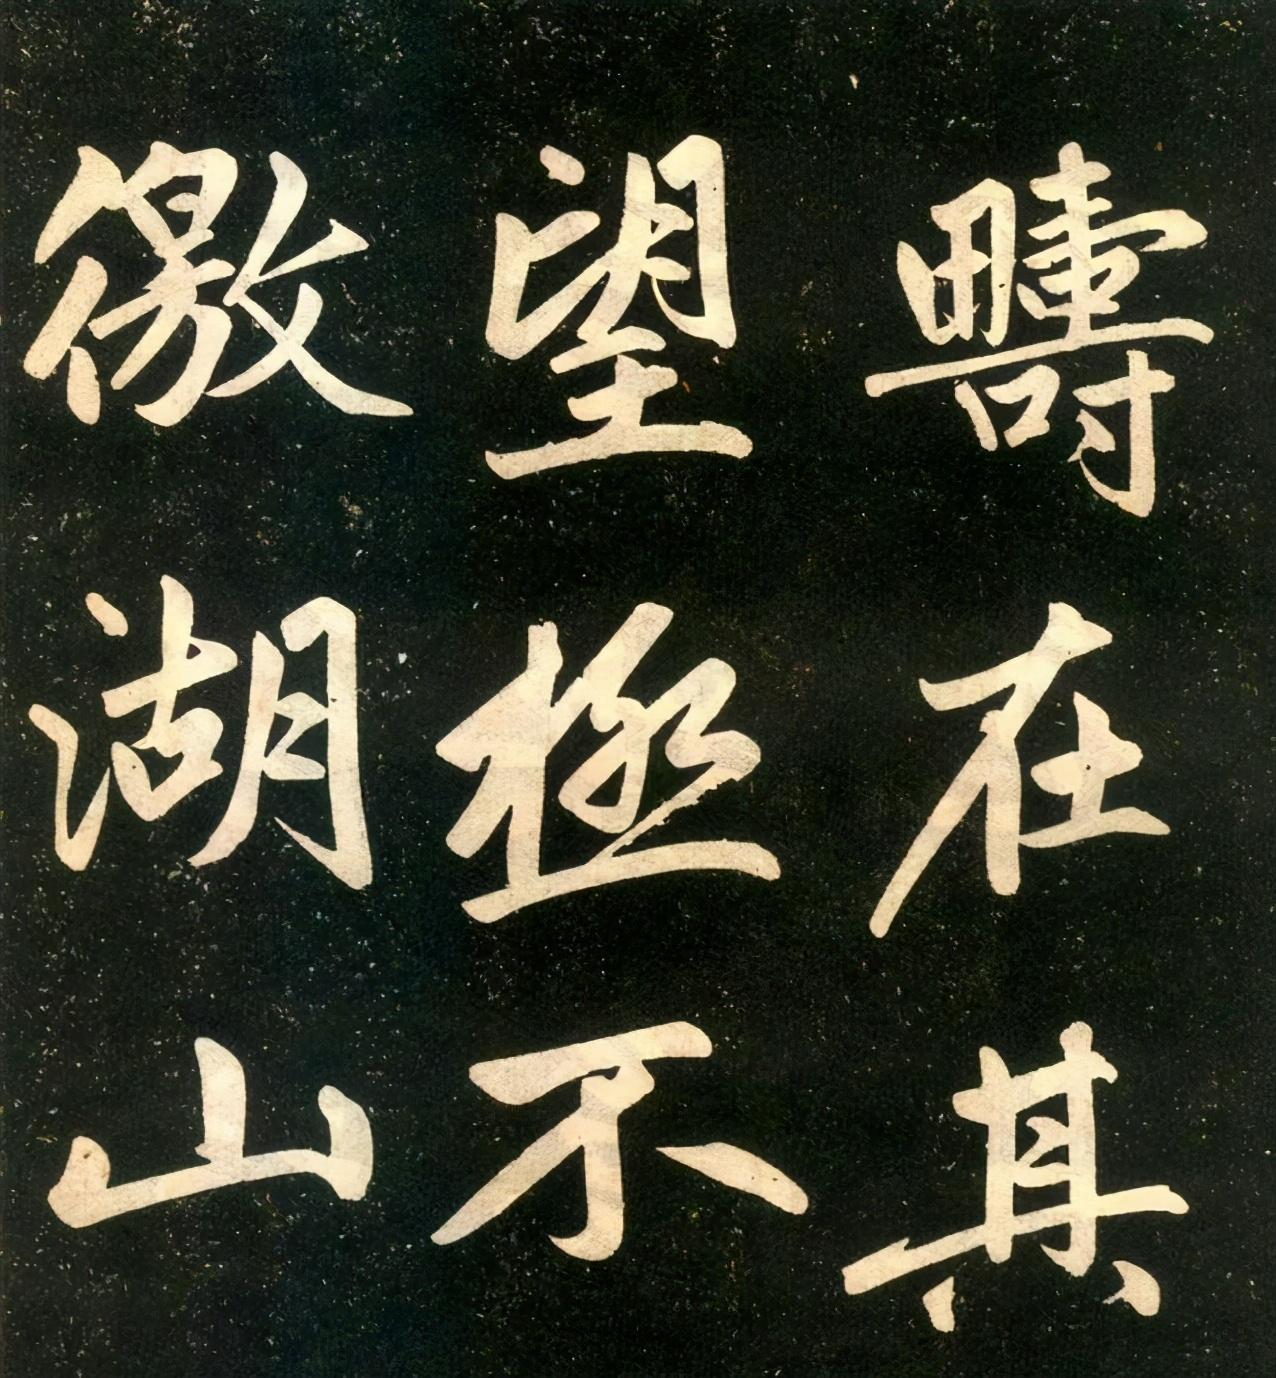 疇在其
望極不
徼湖山